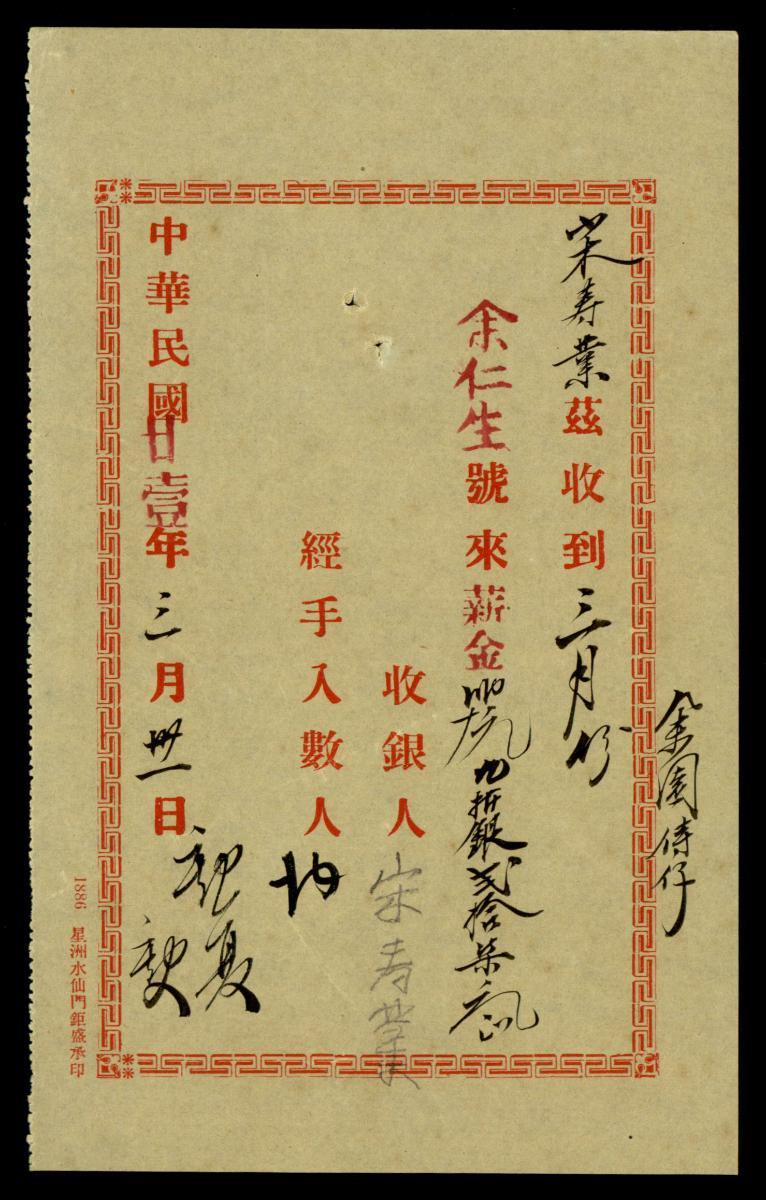 余園侍仔
宋寿業茲收到三月份
余仁生號來薪金九折銀弍拾柒
收銀人宋寿業
經手入數人
中華民國廿壹年三月卅一日
1886 星洲水仙門鉅盛承印